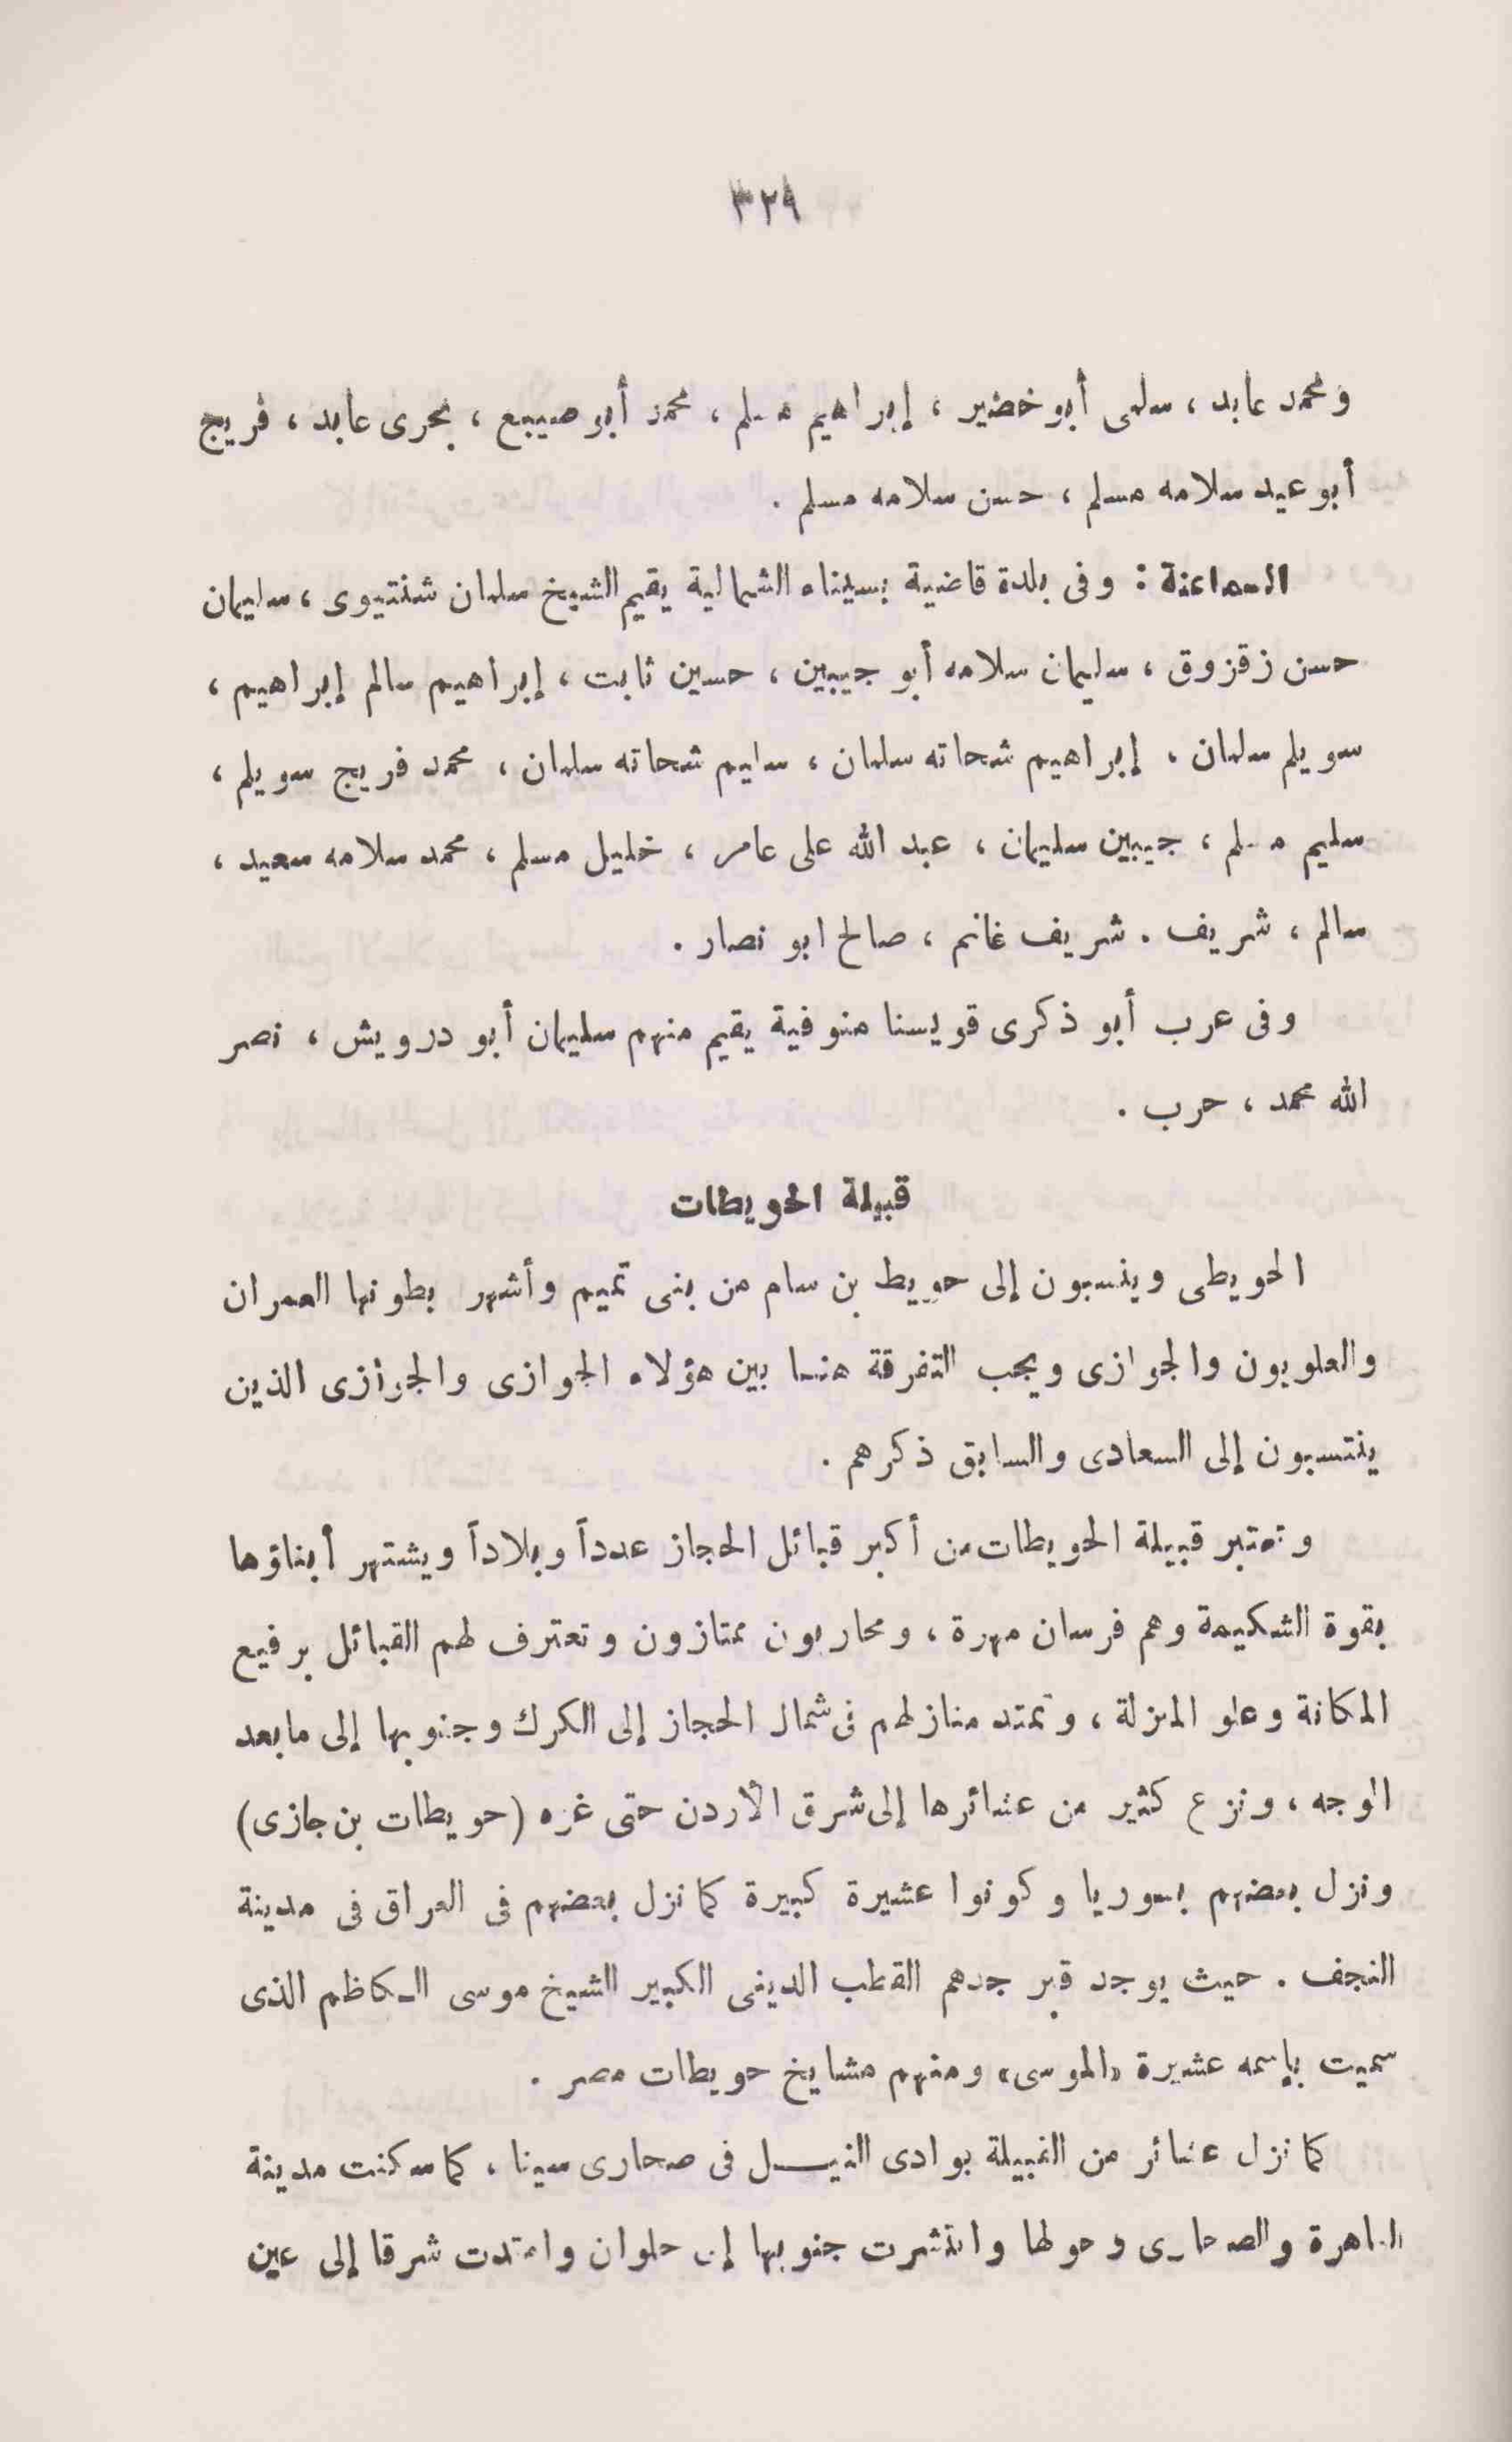 ٣٢٩
ومحمد عابد ، سلمى أبو خضير ، إبراهيم مسلم ، محمد أبو صبيع ، بحرى عابد ، فريج
أبو عيد سلامه مسلم ، حسن سلامه مسلم .
السماعنة : وفى بلدة قاضية بسيناء الشمالية يقيم الشيخ سلمان شنتيوى ، سليمان
حسن زقزوق ، سليمان سلامه أبو جيبين ، حسين ثابت ، إبراهيم سالم إبراهيم ،
سويلم سلمان ، إبراهيم شحاته سلمان ، سليم شحاته سلمان ، محمد فريج سويلم ،
سليم مسلم ، جيبين سليمان ، عبد الله على عامر ، خليل مسلم ، محمد سلامه سعيد ،
سالم ، شريف . شريف غانم ، صالح ابو نصار .
وفى عرب أبو ذكرى قويسنا منوفية يقيم منهم سليمان أبو درويش ، نصر
الله محمد ، حرب .
قبيلة الحويطات
الحويطى وينسبون إلى حويط بن سام من بنى تميم وأشهر بطونها العمران
والعلويون والجوازى ويجب التفرقة هنا بين هؤلاء الجوازى والجوازى الذين
ينتسبون إلى السعادى والسابق ذكرهم .
وتعتبر قبيلة الحويطات من أكبر قبائل الحجاز عدداً وبلاداً ويشتهر أبناؤها
بقوة الشكيمة وهم فرسان مهرة ، ومحاربون ممتازون وتعترف لهم القبائل برفيع
المكانة وعلو المنزلة ، وتمتد منازلهم فى شمال الحجاز إلى الكرك وجنوبها إلى مابعد
الوجه ، ونزع كثير من عشائرها إلى شرق الأردن حتى غزه (حويطات بن جازى)
ونزل بعضهم بسوريا وكونوا عشيرة كبيرة كما نزل بعضهم فى العراق فى مدينة
النجف . حيث يوجد قبر جدهم القطب الدينى الكبير الشيخ موسى الكاظم الذى
سميت بإسمه عشيرة «الموسى» ومنهم مشايخ حويطات مصر .
كما نزل عشائر من القبيلة بوادى النيل فى صحارى سينا ، كما سكنت مدينة
القاهرة والصحارى وحولها وانتشرت جنوبها إلى حلوان وامتدت شرقا إلى عين